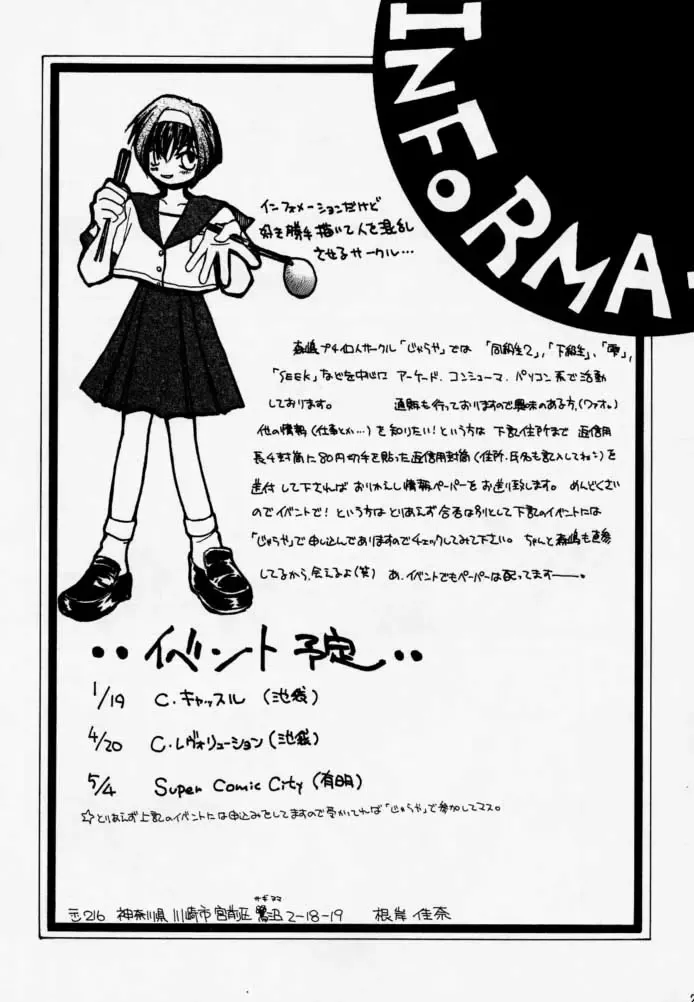 INFORMA-
インフォメーションだけど
好き勝手描いて人を混乱
させるサークル…
森嶋プチイロ人サークル「じゃらや」では 「同級生2」,「下級生」、「雫」,
「SEEK」などを中心に アーケード. コンシューマ. パソコン系で活動
しております。 通販も行っておりますので興味のある方、(ワァオ。)
他の情報(仕事とか…)を知りたい!という方は 下記住所まで 返信用
長4封筒に80円切手を貼った返信用封筒(住所.氏名も記入してね)を
送付して下されば おりかえし情報ペーパーをお送り致します。 めんどくさい
のでイベントで! という方は とりあえず合否は別として下記のイベントには
「じゃらや」で申し込んでありますのでチェックしてみて下さい。 ちゃんと森嶋も直参
してるから、会えるよ(笑) あ、イベントでもペーパーは配ってます――。
・・イベント 予定・・
1/19 C.キャッスル(池袋)
4/20 C.レヴォリューション(池袋)
5/4 Super Comic City(有明)
☆とりあえず上記のイベントには申込みをしてますので受かってれば「じゃらや」で参加してマス。
〒216 神奈川県 川崎市 宮前区 鷺沼 2-18-19 根岸 佳奈